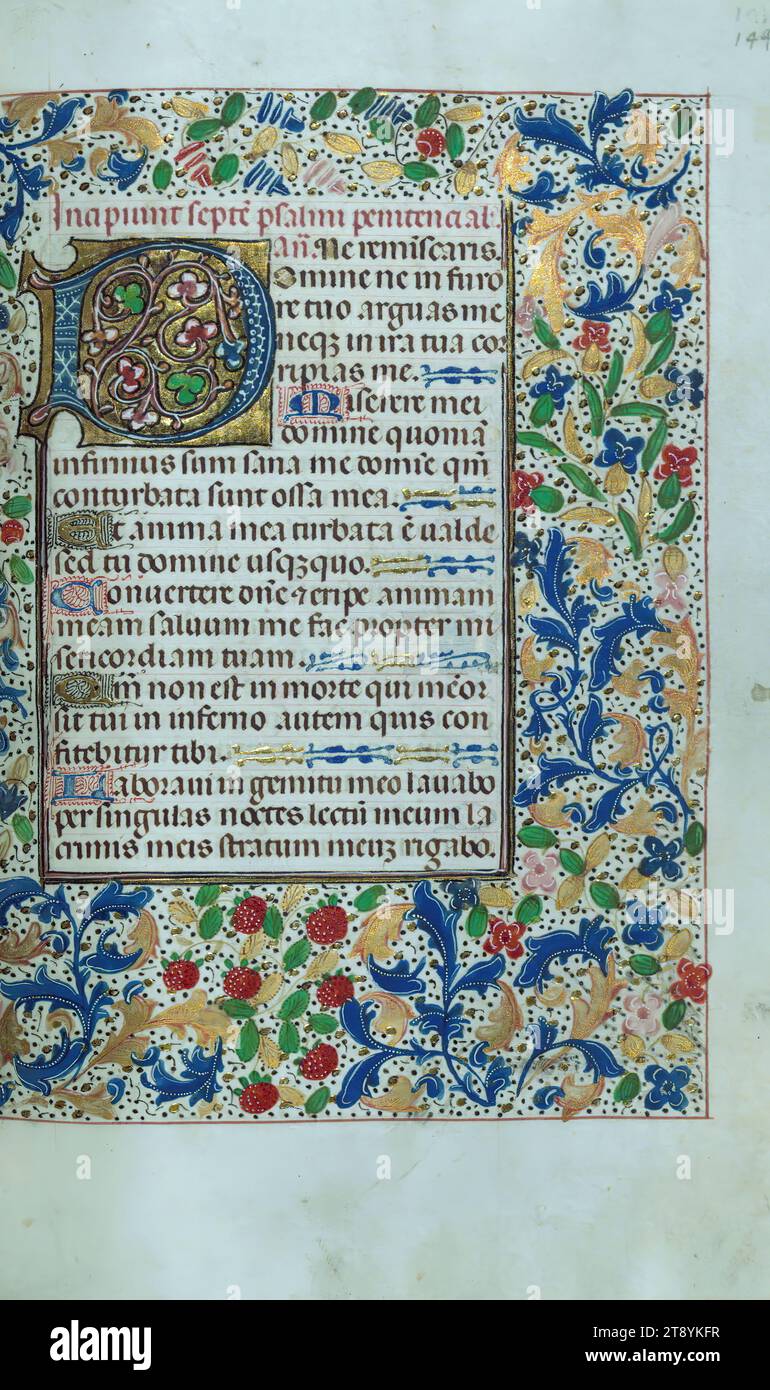 149
Incipiunt septē psalmi penitencial
An̄. Ne reminiscaris.
Domine ne in furo
re tuo arguas me
neqz in ira tua cor
ripias me.
Miserere mei
domine quoniā
infirmus sum sana me domīe qm̄
conturbata sunt ossa mea.
Et anima mea turbata ē ualde
sed tu domine usqzquo.
Convertere dn̄e & eripe animam
meam saluum me fac propter mi
sericordiam tuam.
Qm̄ non est in morte qui mēor
sit tui in inferno autem quis con
fitebitur tibi.
Laboravi in gemitu meo lavabo
per singulas noctes lectū meum la
crimis meis stratum meuz rigabo.
alamy
Image ID: 2T8YKFR
www.alamy.com